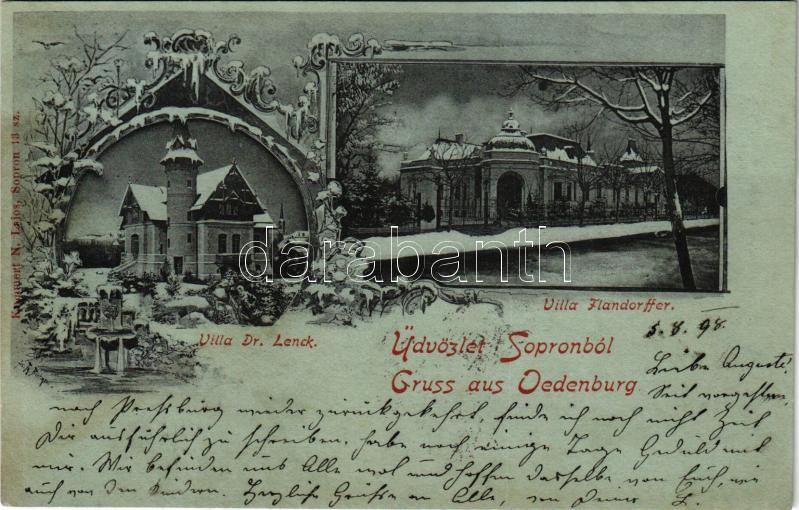 Kummert N. Lajos, Sopron 13 sz.
Villa Dr. Lenck.
Villa Flandorffer.
Üdvözlet Sopronból
Gruss aus Oedenburg
5.8.98.
Liebe Auguste!
Seit vorgestern
nach Preßburg wieder zurückgekehrt, finde ich noch nicht Zeit
Dir ausführlich zu schreiben, habe noch einige Tage Geduld mit
mir. Wir befinden uns Alle wol und hoffen dasselbe von Euch, wie
auch von den Kindern. Herzliche Grüße an Alle, von Deiner L.
darabanth